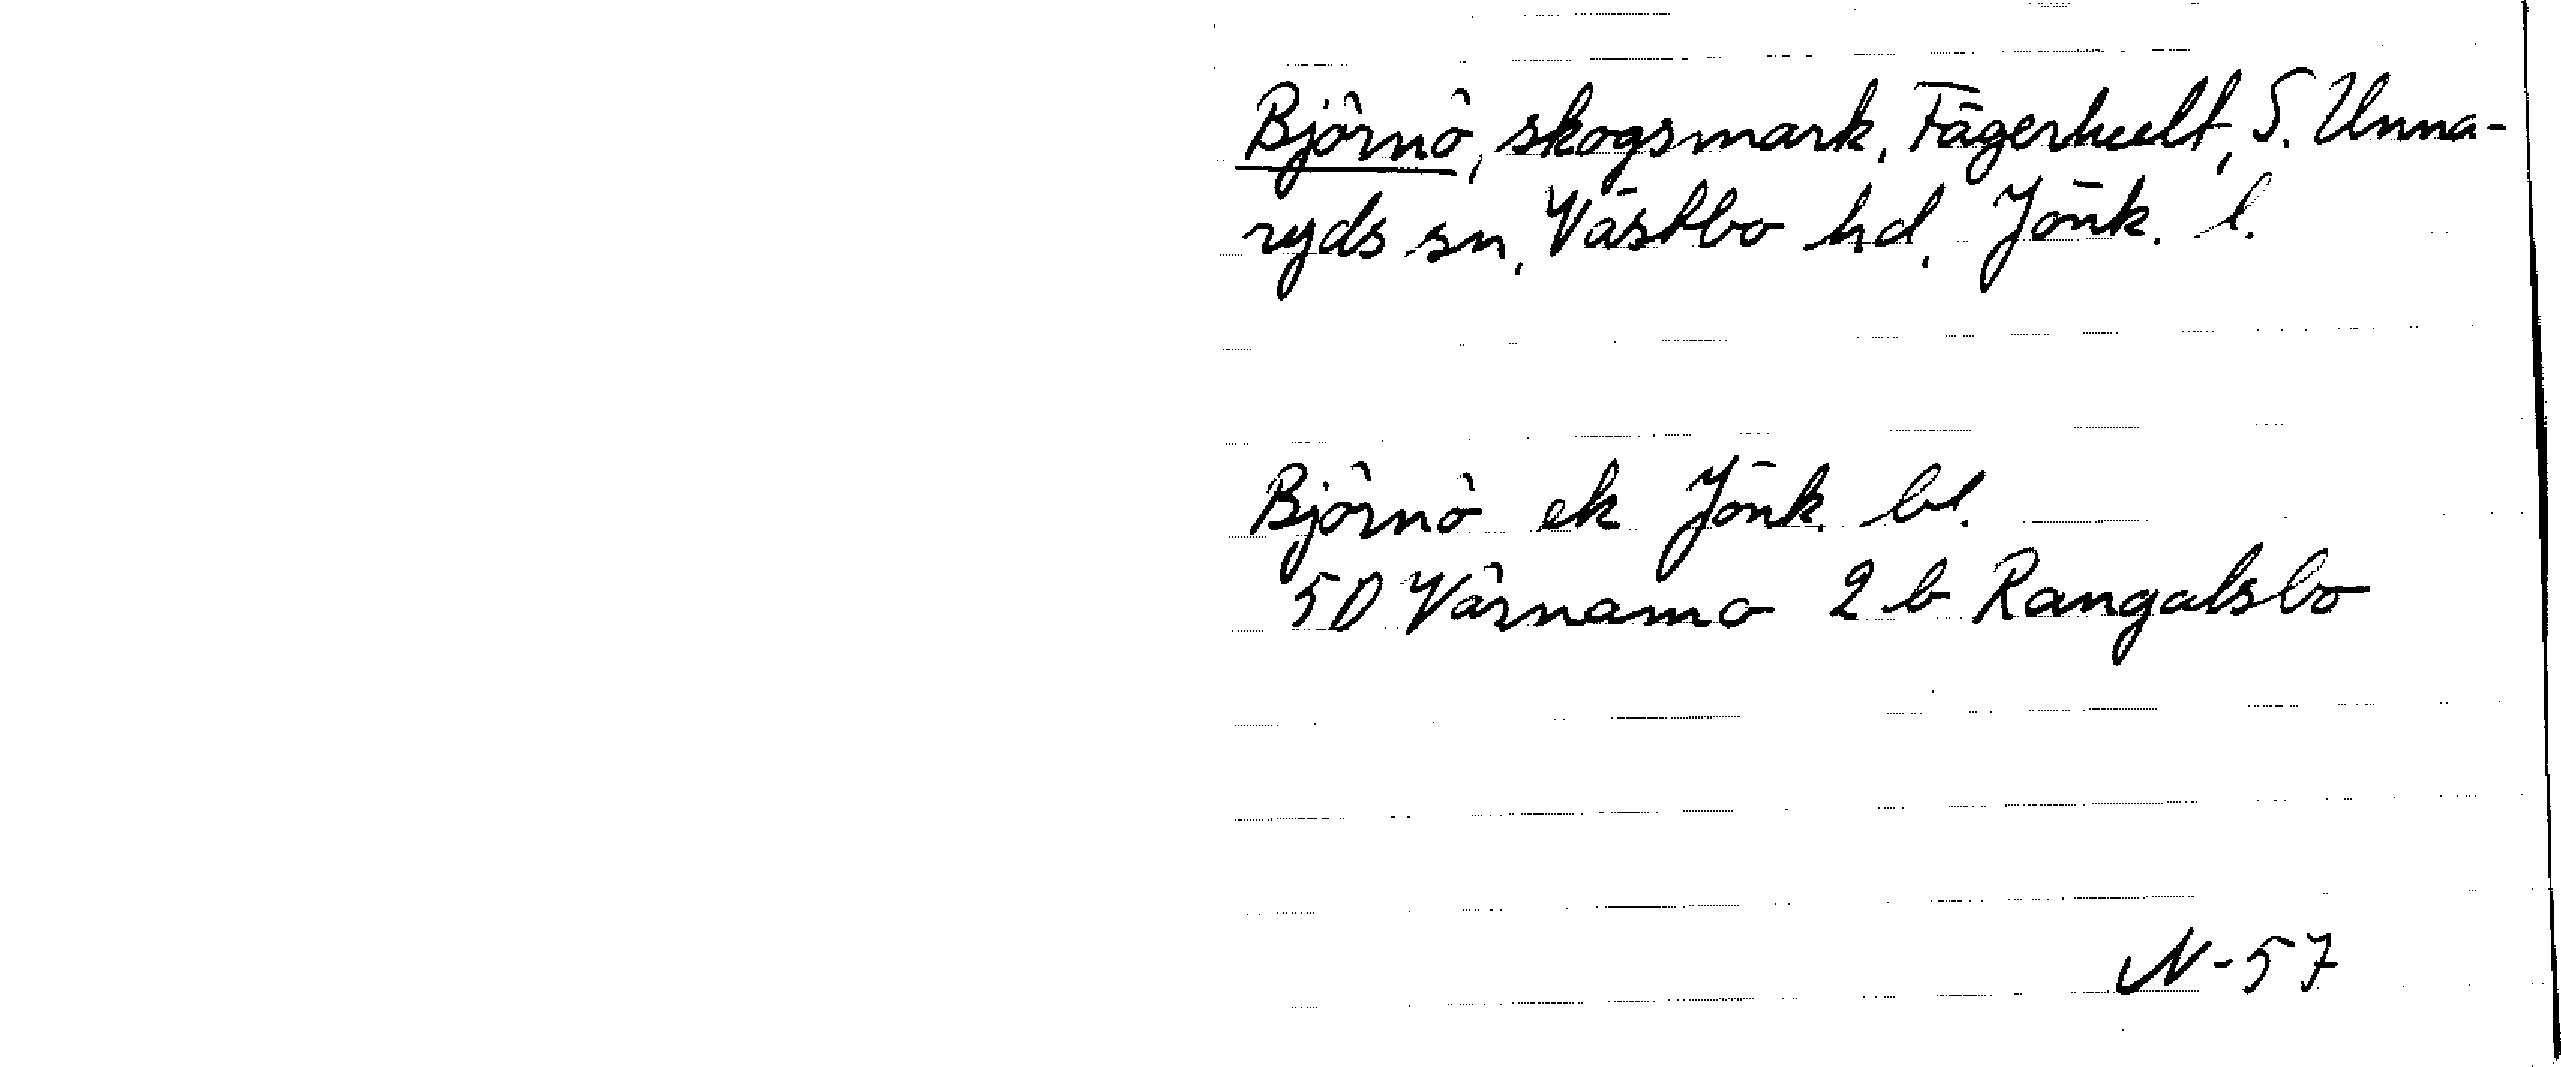 Björnö, skogsmark, Fägerhult, S. Unna-
ryds sn, Västbo hd, Jönk. l.
Björnö ek Jönk. bl.
5D Värnamo 2 b Rangalsbo
N-57